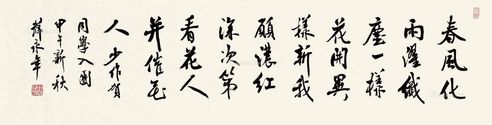 春風化
雨濯纖
塵一樣
花開異
樣新我
願濃紅
深次第
看花人
并催花
人 少作賀
同學入園
甲午新秋
薛永年